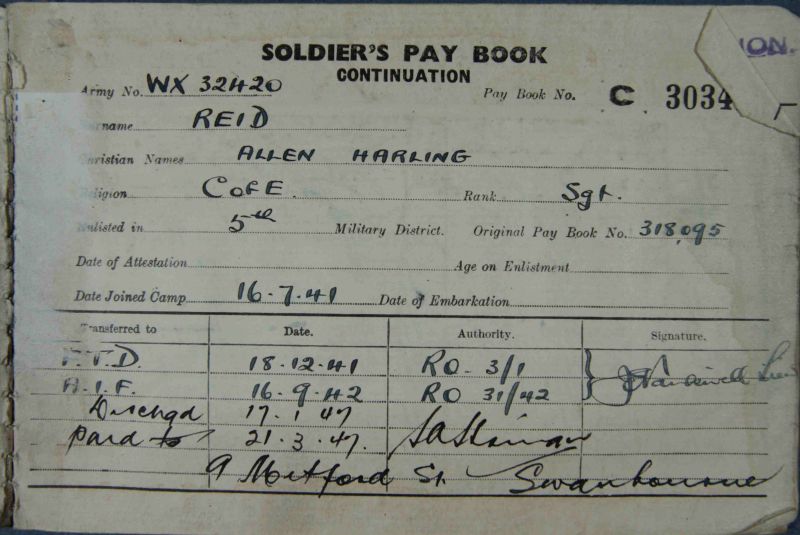 ION.
SOLDIER'S PAY BOOK
CONTINUATION
Army No. WX 32420 Pay Book No. C 3034
urname REID
hristian Names ALLEN HARLING
ligion C of E. Rank Sgt.
nlisted in 5th Military District. Original Pay Book No. 318,095
Date of Attestation Age on Enlistment
Date Joined Camp 16.7.41 Date of Embarkation
ransferred to Date. Authority. Signature.
F.T.D. 18.12.41 RO 3/1
A.I.F. 16.9.42 RO 31/42
Dischgd 17.1.47
paid to 21.3.47.
9 Mitford St. Swanbourne